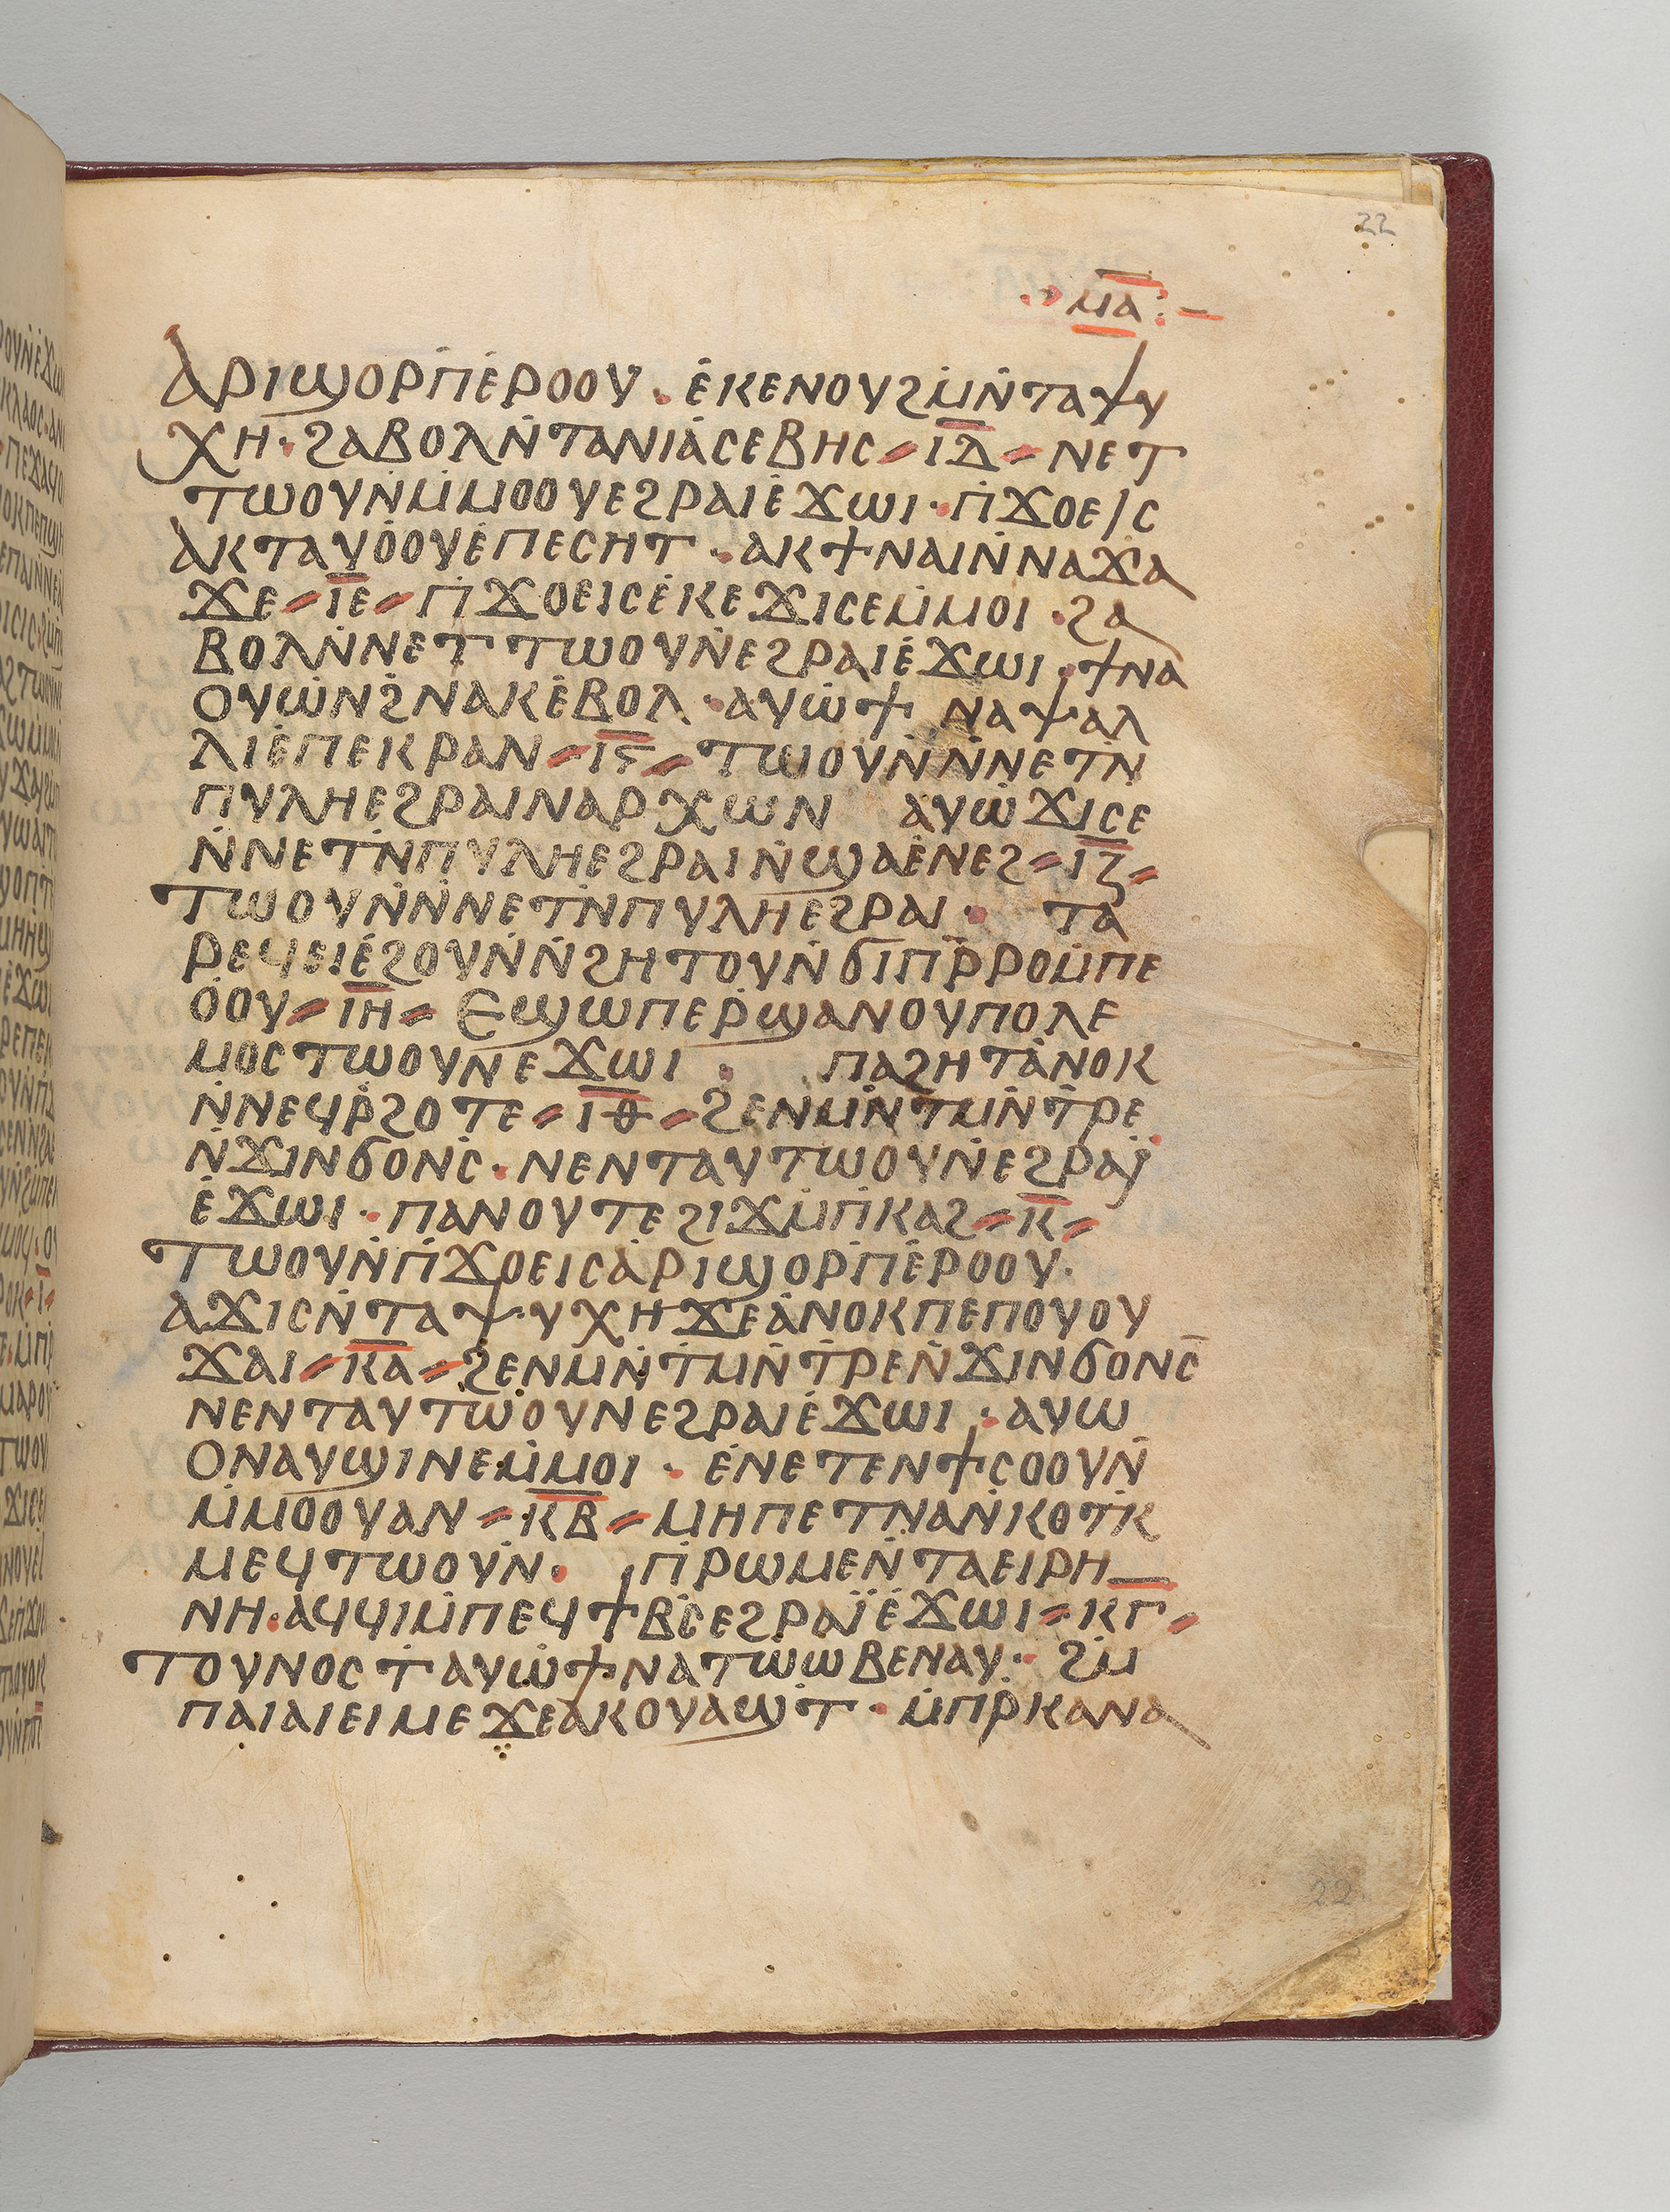 22
ⲙ̅ⲁ̅
ⲁⲣⲓϣⲟⲣⲡ̇ⲉ̇ⲣⲟⲟⲩ · ⲉ̇ⲕⲉⲛⲟⲩϩⲙ̇ⲛ̇ⲧⲁⲯⲩ
ⲭⲏ · ϩⲁⲃⲟⲗⲛ̇ⲧⲁⲛⲓⲁ̇ⲥⲉⲃⲏⲥ – ⲓ̅ⲇ̅ – ⲛⲉⲧ
ⲧⲱⲟⲩⲛⲙ̇ⲙⲟⲟⲩⲉϩⲣⲁⲓⲉ̇ϫⲱⲓ · ⲡ̇ϫⲟⲉⲓⲥ
ⲁⲕⲧⲁⲩⲟ̇ⲟⲩⲉ̇ⲡⲉⲥⲏⲧ · ⲁⲕϯⲛⲁⲓⲛ̇ⲛⲁϫⲁ
ϫⲉ – ⲓ̅ⲉ̅ – ⲡ̇ϫⲟⲉⲓⲥⲉ̇ⲕⲉϫⲓⲥⲉⲙ̇ⲙⲟⲓ · ϩⲁ
ⲃⲟⲗⲛ̇ⲛⲉⲧⲧⲱⲟⲩⲛ̇ⲉϩⲣⲁⲓⲉ̇ϫⲱⲓ · ϯⲛⲁ
ⲟⲩⲱ̇ⲛϩ̇ⲛⲁⲕⲉ̇ⲃⲟⲗ · ⲁⲩⲱ̇ϯ ⲛⲁⲯⲁⲗ
ⲗⲓⲉ̇ⲡⲉⲕⲣⲁⲛ – ⲓ̅ⲋ̅ – ⲧⲱⲟⲩⲛ̇ⲛ̇ⲛⲉⲧⲛ̇
ⲡⲩⲗⲏⲉϩⲣⲁⲓⲛⲁⲣⲭⲱⲛ ⲁⲩⲱ̇ϫⲓⲥⲉ
ⲛ̇ⲛⲉⲧⲛ̇ⲡⲩⲗⲏⲉϩⲣⲁⲓⲛ̇ϣⲁⲉ̇ⲛⲉϩ – ⲓ̅ⲍ̅ –
ⲧⲱⲟⲩⲛ̇ⲛ̇ⲛⲉⲧⲛ̇ⲡⲩⲗⲏⲉϩⲣⲁⲓ · ⲧⲁ
ⲣⲉϥⲉⲓⲉ̇ϩⲟⲩⲛ̇ⲛ̇ϩⲏⲧⲟⲩⲛ̇ϭⲓⲡⲣ̅ⲣⲟⲙ̇ⲡⲉ
ⲟ̇ⲟⲩ – ⲓ̅ⲏ̅ – ⲉϣⲱⲡⲉⲣ̇ϣⲁⲛⲟⲩⲡⲟⲗⲉ
ⲙⲟⲥⲧⲱⲟⲩⲛⲉϫⲱⲓ · ⲡⲁϩⲏⲧⲁ̇ⲛⲟⲕ
ⲛ̇ⲛⲉϥⲣ̇ϩⲟⲧⲉ – ⲓ̅ⲑ̅ – ϩⲉⲛⲙⲛ̇ⲧⲙⲛ̇ⲧⲣⲉ
ⲛ̇ϫⲓⲛϭⲟⲛⲥ̇ · ⲛⲉⲛⲧⲁⲩⲧⲱⲟⲩⲛ̇ⲉϩⲣⲁⲓ̈
ⲉ̇ϫⲱⲓ · ⲡⲁⲛⲟⲩⲧⲉϩⲓϫⲙ̇ⲡ̇ⲕⲁϩ – ⲕ̅ –
ⲧⲱⲟⲩⲛ̇ⲡ̇ϫⲟⲉⲓⲥⲁ̇ⲣⲓϣⲟⲣⲡ̇ⲉ̇ⲣⲟⲟⲩ ·
ⲁϫⲓⲥⲛ̇ⲧⲁⲯⲩⲭⲏϫⲉⲁ̇ⲛⲟⲕⲡⲉⲡⲟⲩⲟⲩ
ϫⲁⲓ – ⲕ̅ⲁ̅ – ϩⲉⲛⲙⲛ̇ⲧⲙⲛ̇ⲧⲣⲉⲛ̇ϫⲓⲛϭⲟⲛⲥ̅
ⲛⲉⲛⲧⲁⲩⲧⲱⲟⲩⲛⲉϩⲣⲁⲓⲉ̇ϫⲱⲓ · ⲁⲩⲱ
ⲟⲛⲁⲩϣⲓⲛⲉⲙ̇ⲙⲟⲓ · ⲉ̇ⲛⲉⲧⲉⲛϯⲥⲟⲟⲩⲛ̇
ⲙ̇ⲙⲟⲟⲩⲁⲛ – ⲕ̅ⲃ̅ – ⲙⲏⲡⲉⲧⲛⲁⲛ̇ⲕⲟⲧⲕ̇
ⲙⲉϥⲧⲱⲟⲩⲛ̇ · ⲡ̇ⲣⲱⲙⲉⲛ̇ⲧⲁⲉⲓⲣⲏ
ⲛⲏ · ⲁϥϥⲓⲙ̇ⲡⲉϥϯⲃ̇ⲥⲉϩⲣⲁⲓ̈ⲉ̇ϫⲱⲓ – ⲕ̅ⲅ̅ –
ⲧⲟⲩⲛⲟⲥⲧ̇ⲁⲩⲱ̇ϯⲛⲁⲧⲱⲱⲃⲉⲛⲁⲩ · ϩⲙ̇
ⲡⲁⲓⲁⲓⲉⲓⲙⲉϫⲉⲁⲕⲟⲩⲁϣⲧ̇ · ⲙ̇ⲡⲣ̇ⲕⲁⲛⲁ
22